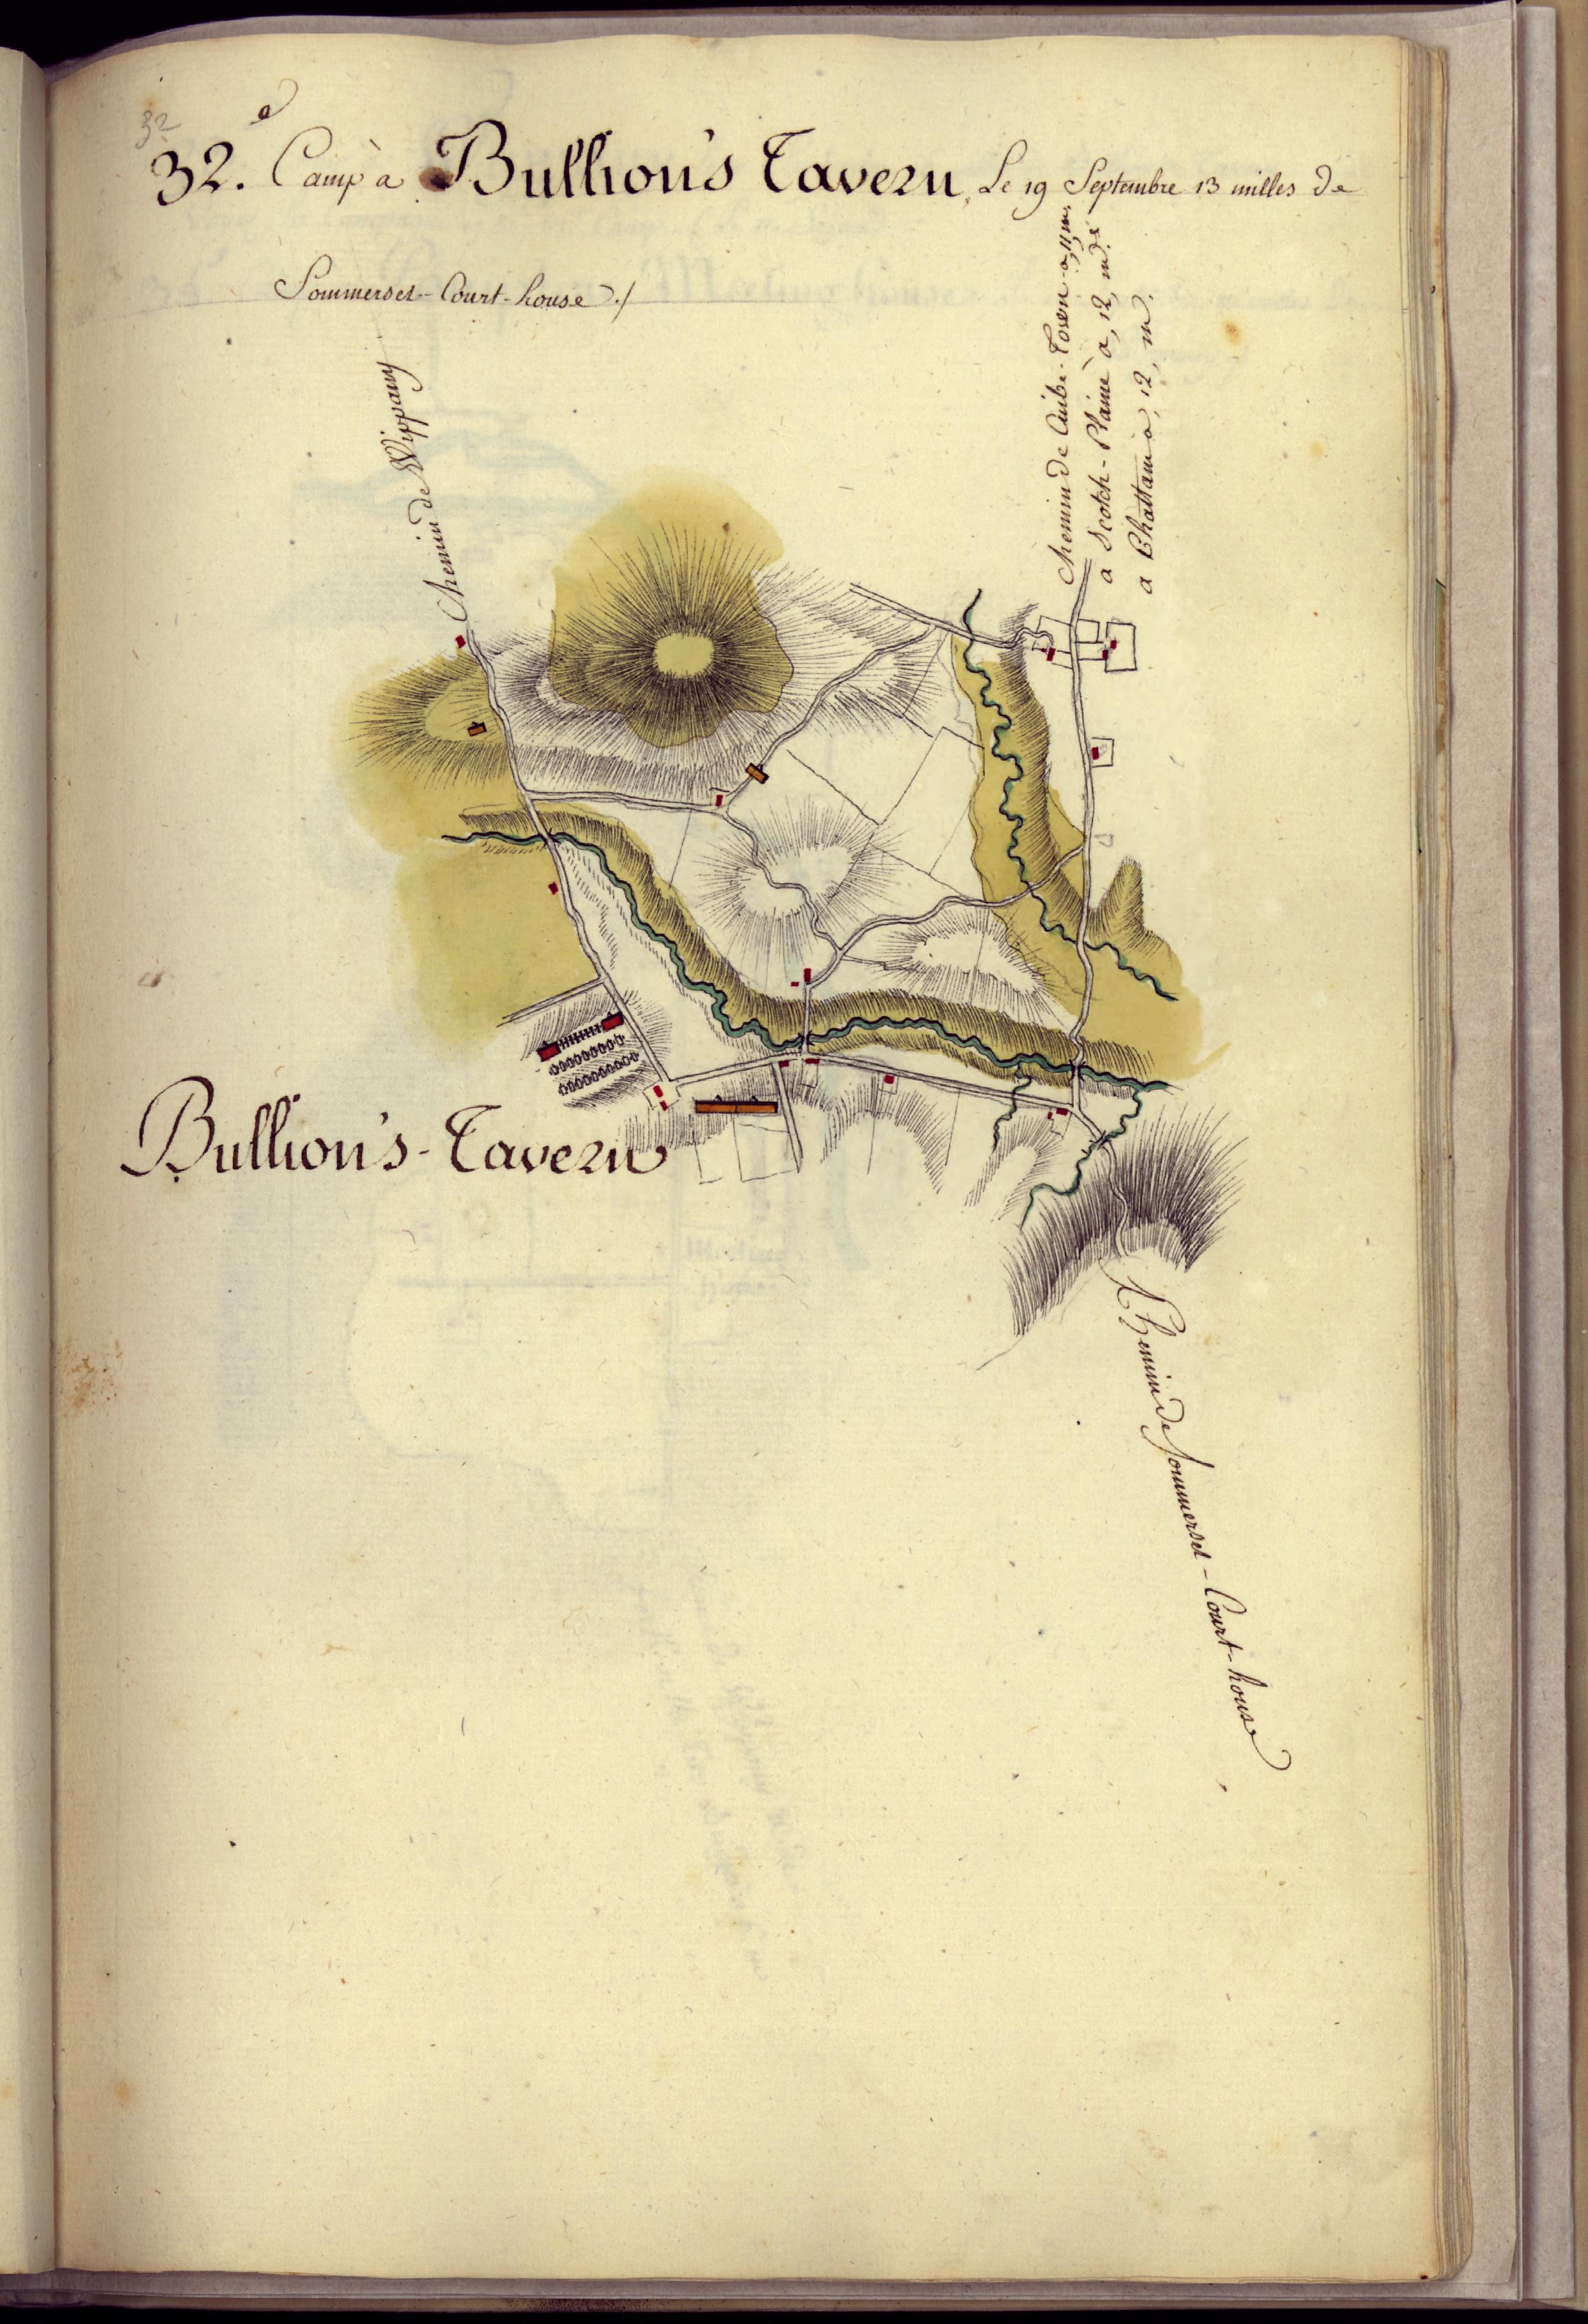 32
32.e Camp à Bullion's Tavern, Le 19 Septembre 13 milles de
Sommerset-Court-house ./
Chemin de Wippany
Chemin de
a Scotch-Plaine à, 12, m. de
a Chattam à, 12, m.
Bullion's-Tavern
Chemin de Sommerset-Court-house